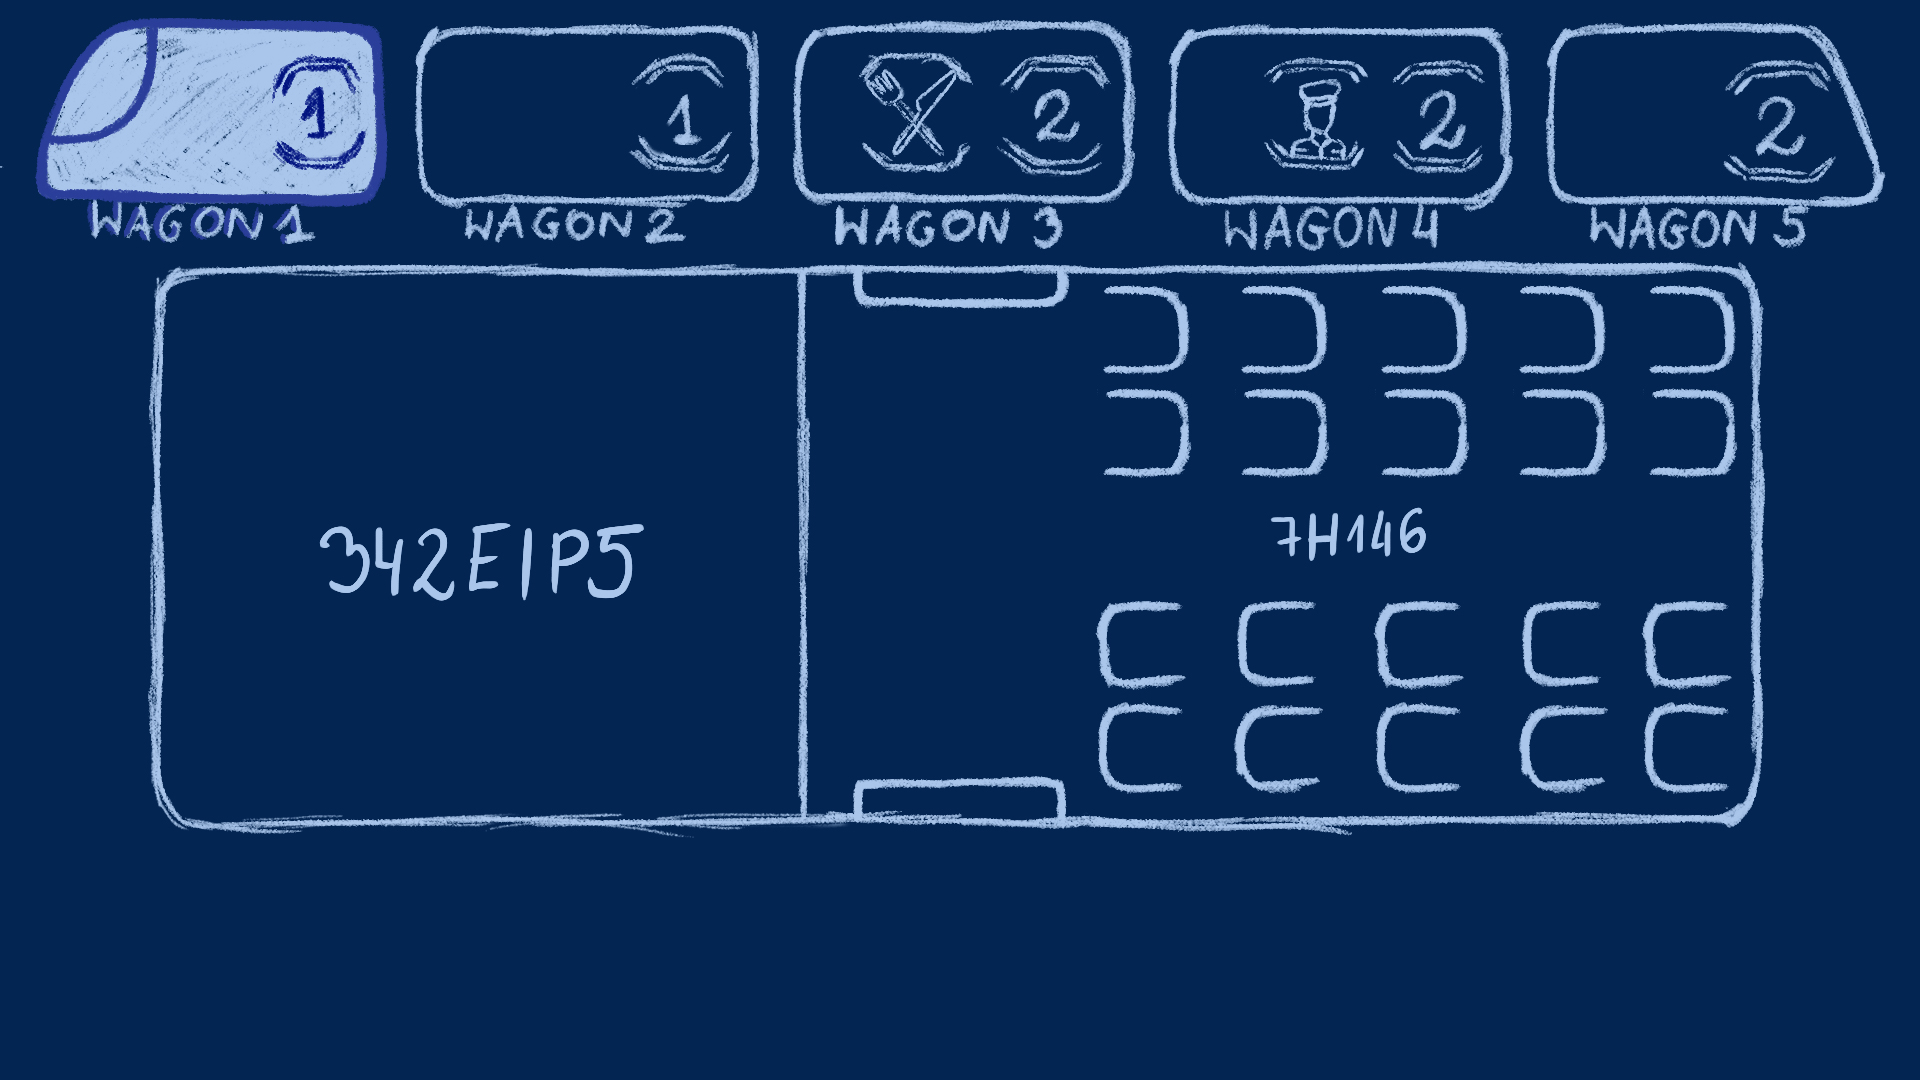 1
1
2
2
2
WAGON 1
WAGON 2
WAGON 3
WAGON 4
WAGON 5
342E1P5
7H146